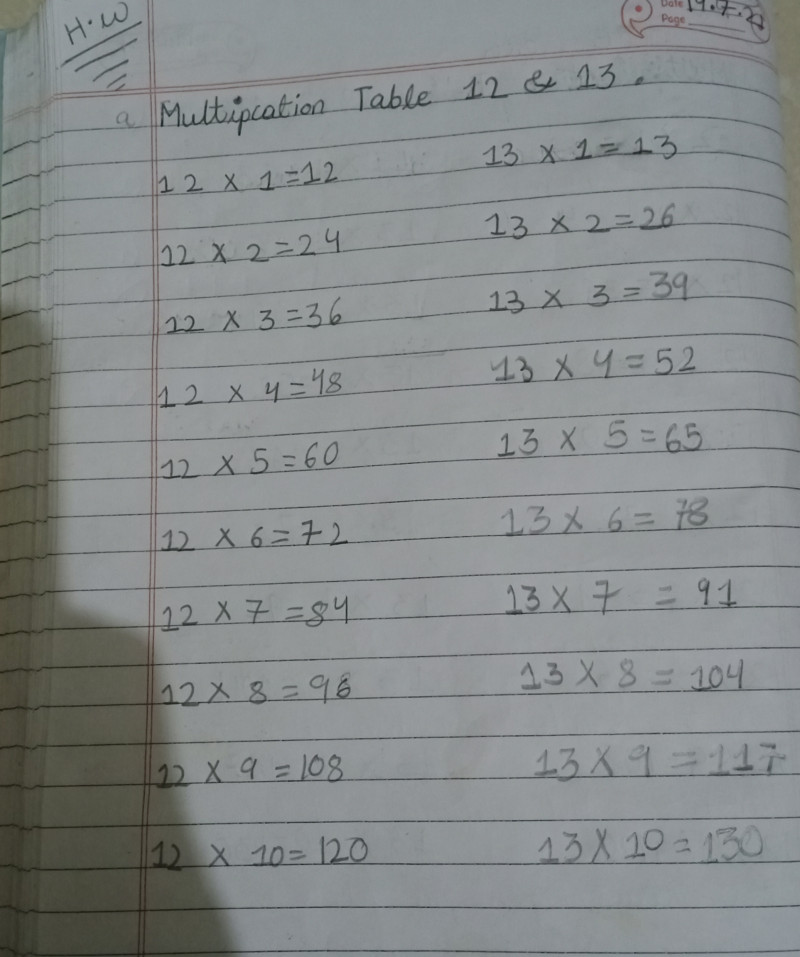 H.W
Date 19.7.22
Page
a Multipcation Table 12 & 13.
12 x 1=12 13 x 1=13
12 x 2=24 13 x 2=26
12 x 3=36 13 x 3=39
12 x 4=48 13 x 4=52
12 x 5=60 13 x 5=65
12 x 6=72 13 x 6=78
12 x 7=84 13 x 7=91
12 x 8=96 13 x 8=104
12 x 9=108 13 x 9=117
12 x 10=120 13 x 10=130